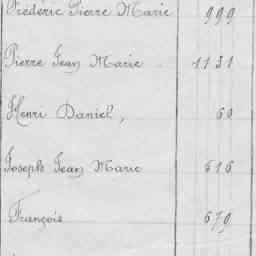 Frédéric Pierre Marie 999
Pierre Jean Marie 1131
Henri Daniel, 60
Joseph Jean Marie 616
François 679